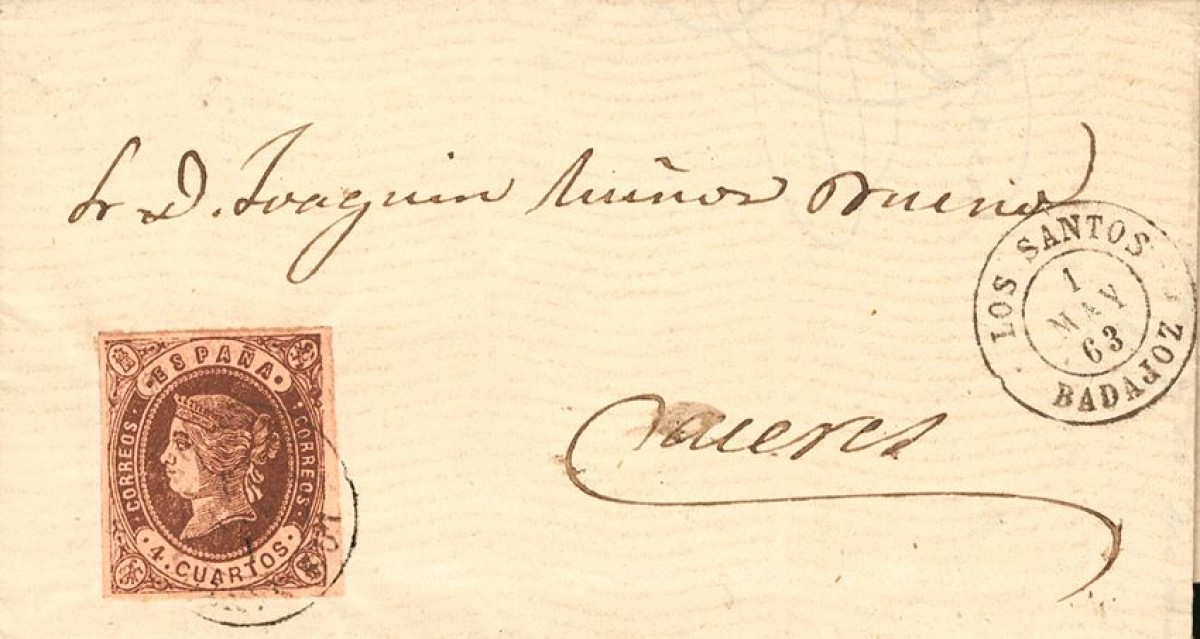 Sr D. Joaquin Muñoz Bueno
LOS SANTOS
1
MAY
63
BADAJOZ
ESPAÑA
CORREOS
CORREOS
4. CUARTOS.
Caceres